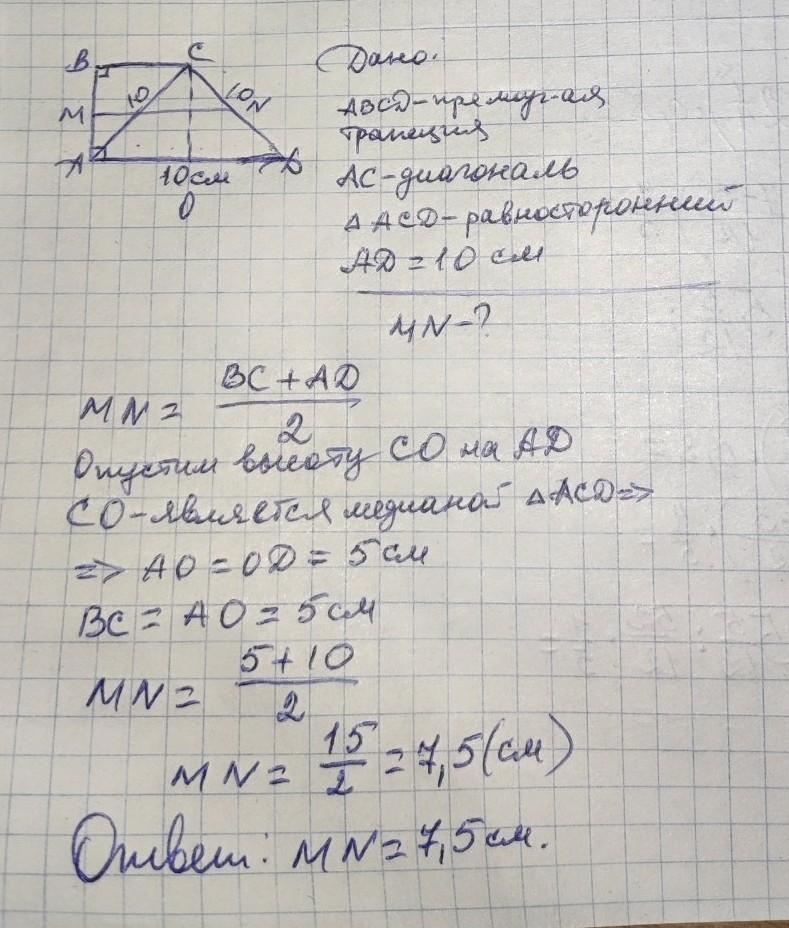 B C
M 10 10 N
A 10см D
O
Дано:
ABCD-прямоуг-ая
трапеция
AC-диагональ
△ACD-равносторонний
AD=10 см
MN-?
MN = BC+AD
2
Опустим высоту CO на AD
CO-является медианой △ACD=>
=> AO=OD=5см
BC=AO=5см
MN= 5+10
2
MN= 15/2 =7,5(см)
Ответ: MN=7,5см.